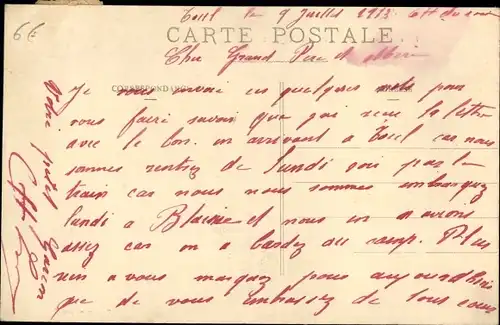 6€
Toul le 9 juillet 1913
CARTE POSTALE
Cher Grand Père et Mère
CORRESPONDANCE
Je vous envoi ces quelques mots pour
vous faire savoir que j'ai reçu la lettre
avec le bon. en arrivant a Toul car nous
sommes rentrez de lundi soir par le
train car nous nous sommes embarquez
lundi a et nous en avons
assez car on a bardez du camp. Plus
rien a vous marquez pour aujourdhui
que de vous embrassez de tous coeur
Votre petit